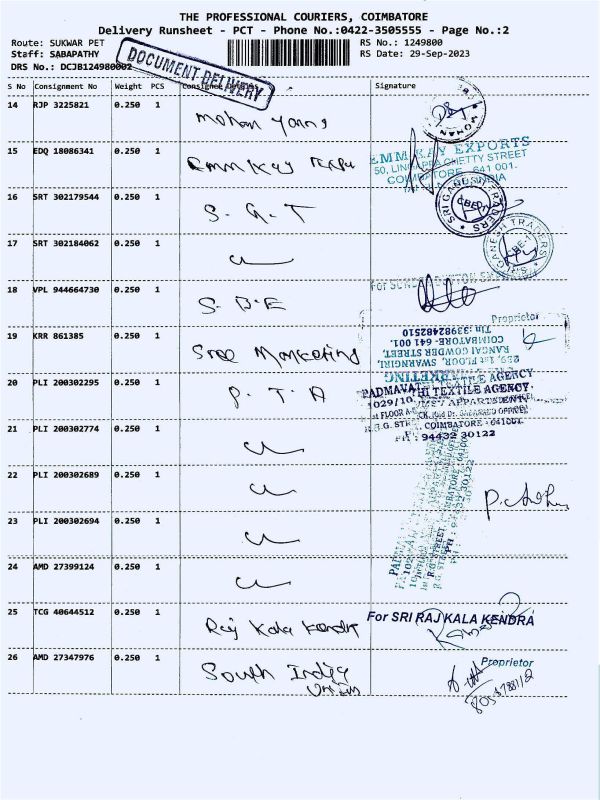 THE PROFESSIONAL COURIERS, COIMBATORE
Delivery Runsheet - PCT - Phone No.:0422-3505555 - Page No.:2
Route: SUKWAR PET RS No.: 1249800
Staff: SABAPATHY RS Date: 29-Sep-2023
DRS No.: DCJB124980002
DOCUMENT DELIVERY
S No Consignment No Weight PCS Consignee Signature
14 RJP 3225821 0.250 1 Mohan Yarns
MOHAN
15 EDQ 18086341 0.250 1 Emm Kay
EMM KAY EXPORTS
50, LINGAPPA CHETTY STREET
COIMBATORE - 641 001.
INDIA
16 SRT 302179544 0.250 1 S. G. T
SRI GANESH TRADERS
CBE-1
17 SRT 302184062 0.250 1
SRI GANESH TRADERS
CBE-1
18 VPL 944664730 0.250 1 S. B. E
Proprietor
19 KRR 861385 0.250 1 Sree Marketing
Tin: 33982482510
COIMBATORE- 641 001.
RANGAI GOWDER STREET,
239, 1st FLOOR, SWARNGIRI,
MARKETING
20 PLI 200302295 0.250 1 P. T. A
PADMAVATHI TEXTILE AGENCY
21 PLI 200302774 0.250 1
COIMBATORE - 641001.
PH : 94432 30122
22 PLI 200302689 0.250 1
23 PLI 200302694 0.250 1
24 AMD 27399124 0.250 1
25 TCG 40644512 0.250 1 Raj Kala Kendra
For SRI RAJ KALA KENDRA
26 AMD 27347976 0.250 1 South India
Union
Proprietor